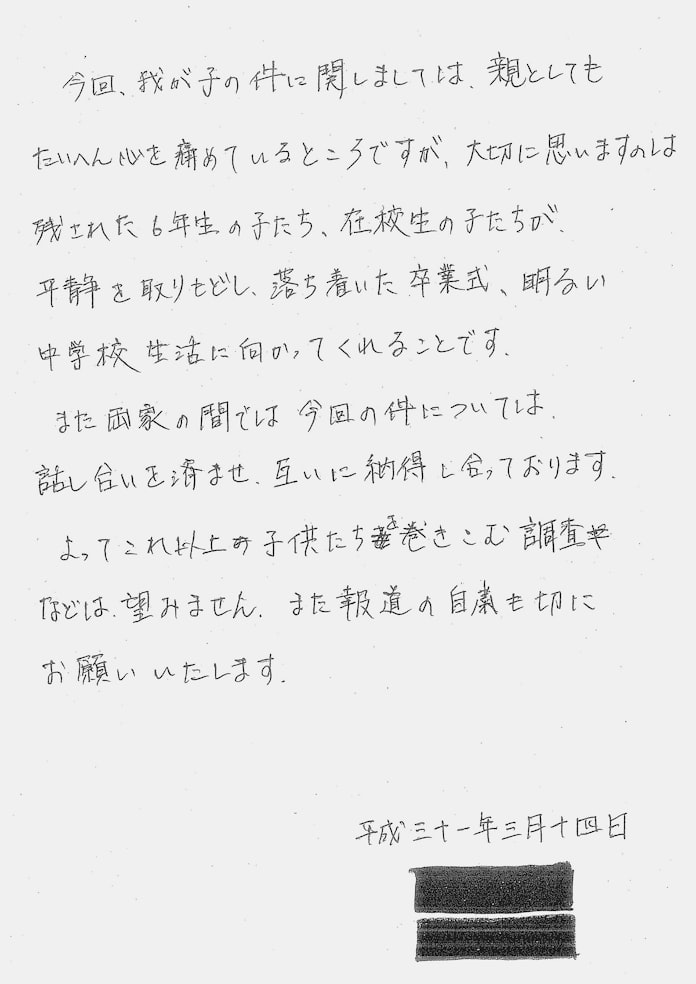 今回、我が子の件に関しましては、親としても
たいへん心を痛めているところですが、大切に思いますのは
残された6年生の子たち、在校生の子たちが、
平静を取りもどし、落ち着いた卒業式、明るい
中学校生活に向かってくれることです。
また両家の間では今回の件については、
話し合いを済ませ、互いに納得し合っております。
よってこれ以上子供たちを巻きこむ調査
などは、望みません。また報道の自粛も切に
お願いいたします。
平成三十一年三月十四日